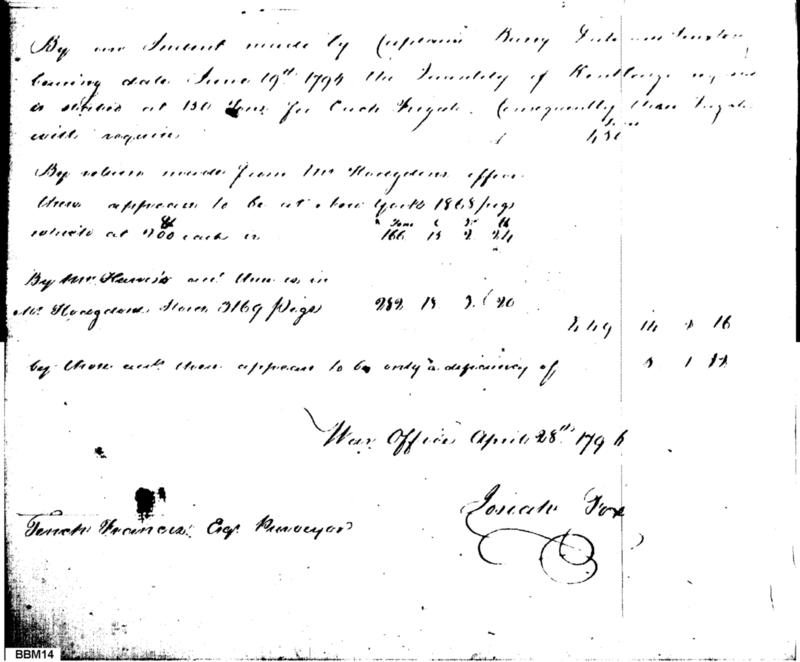 By an Indent made by Captain Barry
bearing date June 19th 1794 the Quantity of Kentlage
is stated at 150 Tons for Each Frigate. Consequently
will require Tons 450
By return made from Mr Hodgdons office
there appears to be at New York 1868 pigs
which at 200 each is Tons 166 15 2 24
By Mr Harris's acct there is in
Mr Hodgdons Stores 3169 Pigs 282 18 3 20
449 14 2 16
by these accts there appears to be only a deficiency of
War Office April 28th 1796
Josiah Fox
Tench Francis Esqr Purveyor
BBM14